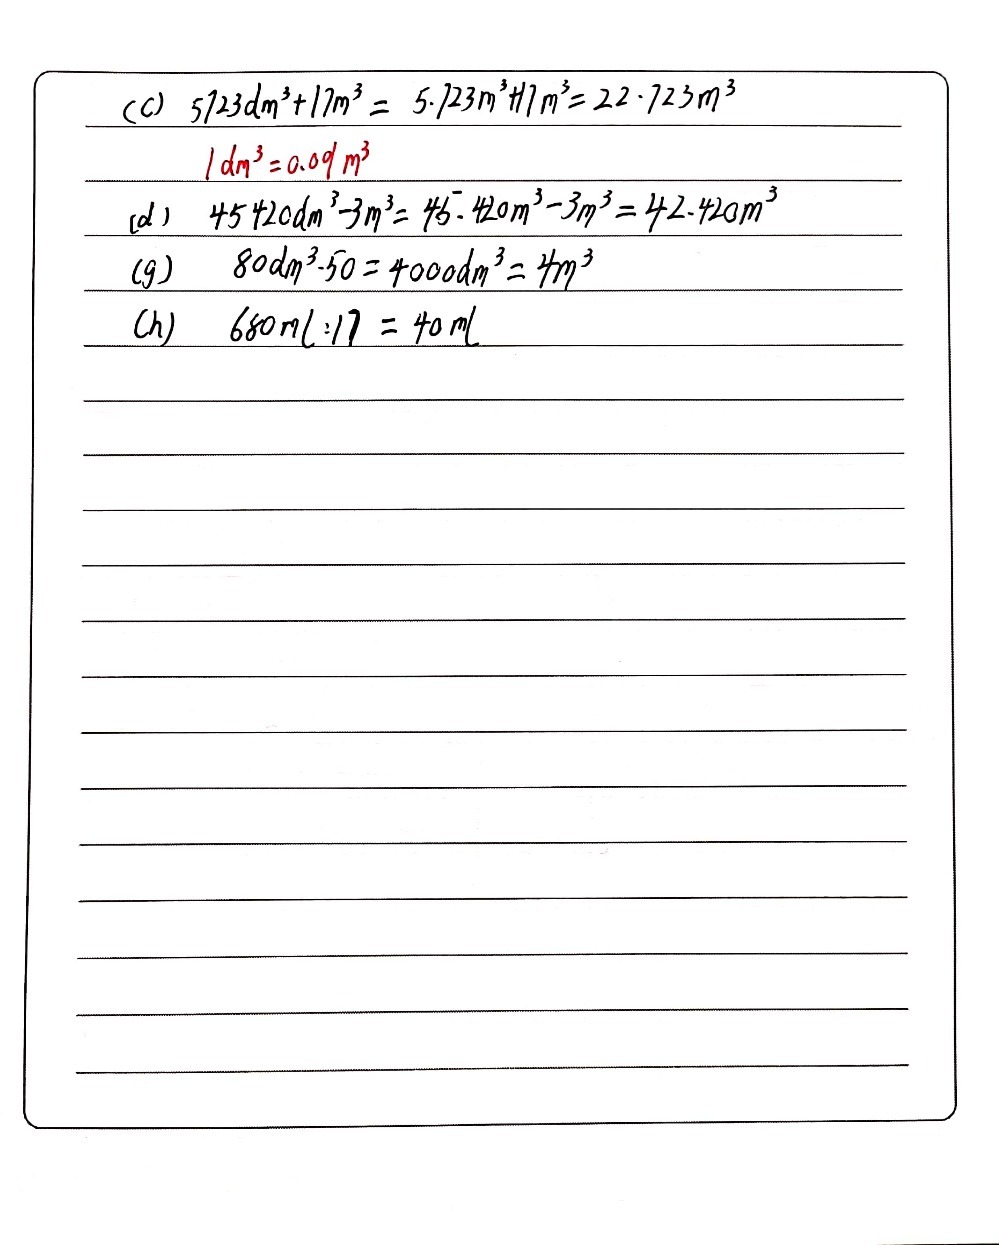 (c) 5723dm³+17m³ = 5.723m³+17m³ = 22.723m³
1dm³=0.001m³
(d) 45420dm³-3m³= 45.420m³-3m³=42.420m³
(g) 80dm³·50=4000dm³=4m³
(h) 680ml:17 = 40ml